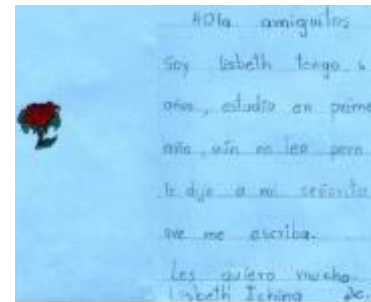 Hola amiguitos
Soy lisbeth tengo 6
años, estudio en prime
año, aún no leo pero
le dije a mi señorita
que me escriba.
Les quiero mucho
Lisbeth Iching de